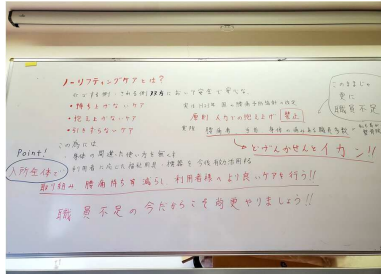 ノーリフティングケアとは？
する側、される側 双方において安全で安心な、
・持ち上げないケア
・抱え上げないケア
・引きずらないケア
原則 人力での抱え上げ 禁止
実際 腰痛者
このままじゃ
更に
職員不足
どげんかせんとイカン!!
この為には
・身体の間違った使い方を無くす
・利用者に応じた福祉用具・機器を 今後有効活用する
Point!
入所全体で
取り組み 腰痛持ちを減らし 利用者様へより良いケアを行う!!
職員不足の今だからこそ尚更やりましょう!!